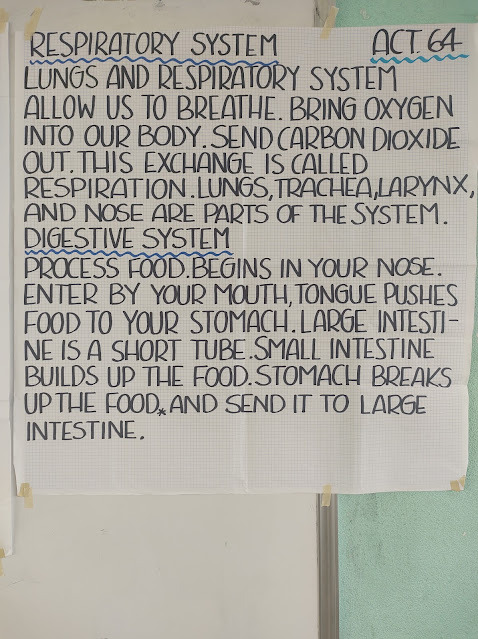 RESPIRATORY SYSTEM ACT. 64
LUNGS AND RESPIRATORY SYSTEM
ALLOW US TO BREATHE. BRING OXYGEN
INTO OUR BODY. SEND CARBON DIOXIDE
OUT. THIS EXCHANGE IS CALLED
RESPIRATION. LUNGS, TRACHEA, LARYNX,
AND NOSE ARE PARTS OF THE SYSTEM.
DIGESTIVE SYSTEM
PROCESS FOOD. BEGINS IN YOUR NOSE.
ENTER BY YOUR MOUTH, TONGUE PUSHES
FOOD TO YOUR STOMACH. LARGE INTESTI-
NE IS A SHORT TUBE. SMALL INTESTINE
BUILDS UP THE FOOD. STOMACH BREAKS
UP THE FOOD * AND SEND IT TO LARGE
INTESTINE.